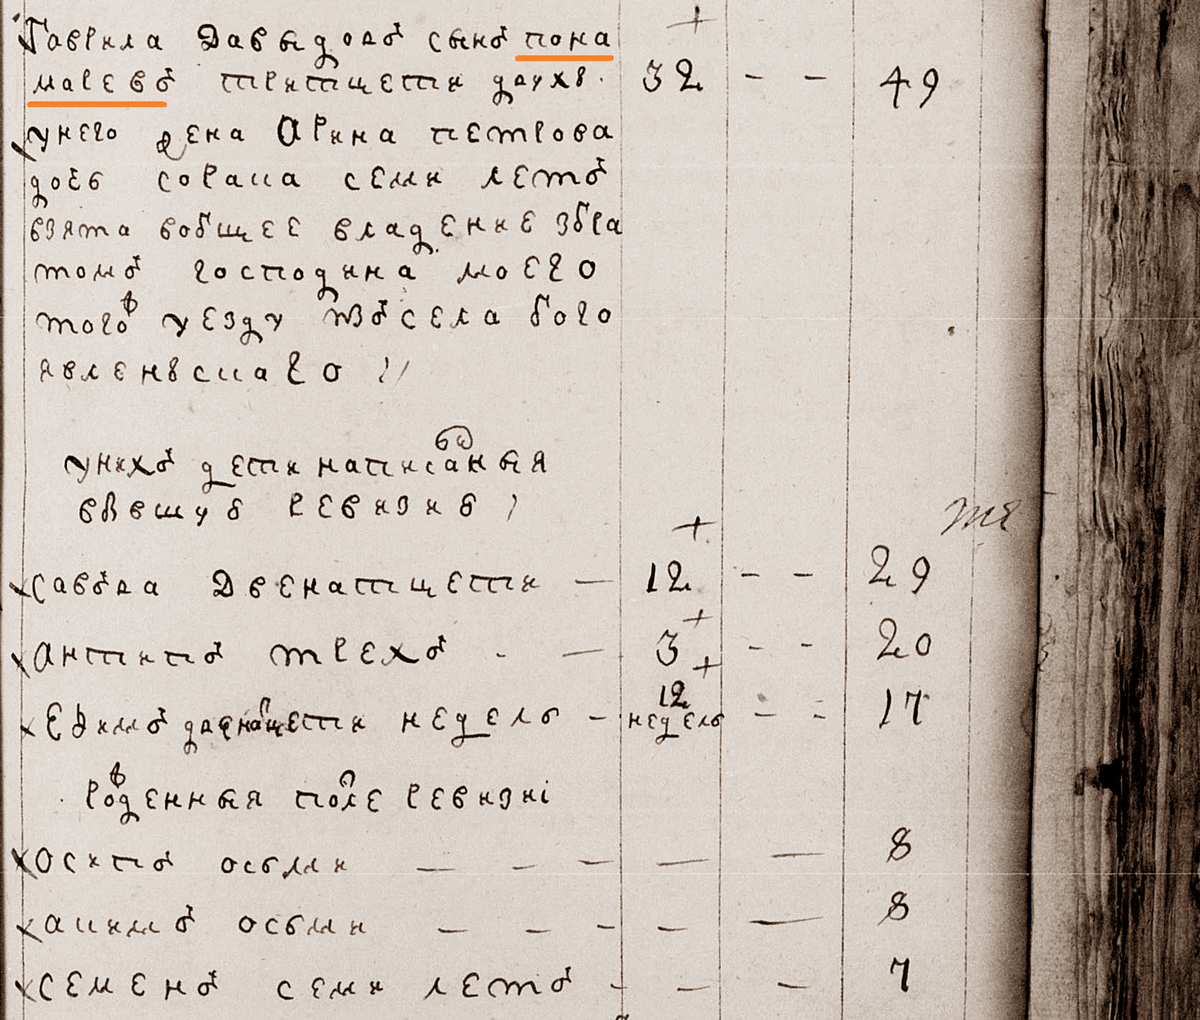 Гаврила Давыдовъ сынъ пона 32 - - 49
маревъ тритцети двухъ
унего жена Арина петрова
дочь сорака семи летъ
взята вобщее владение збра
томъ господина моего
тогожъ уезду изъ села бого
явленъскаго
унихъ дети написаныя
въвышуъ ревизиъ
савъка Двенатцети — 12 - - 29
антипъ трехъ - — 3 - - 20
Ефимъ двенатцети недель - 12 недель - - 17
рожденныя после ревизиі
осипъ осьми — — — — — 8
акимъ осьми — — — — — 8
семенъ семи летъ - — — 7